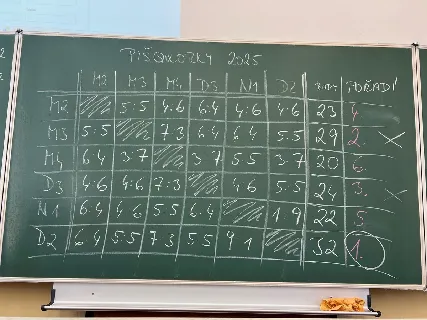 PIŠQWORKY 2025
M2 M3 M4 D3 N1 D2 BODY POŘADÍ
M2 5:5 4:6 6:4 4:6 4:6 23 4.
M3 5:5 7:3 6:4 6:4 5:5 29 2. X
M4 6:4 3:7 3:7 5:5 3:7 20 6.
D3 4:6 4:6 7:3 4:6 5:5 24 3. X
N1 6:4 4:6 5:5 6:4 1:9 22 5.
D2 6:4 5:5 7:3 5:5 9:1 32 1.